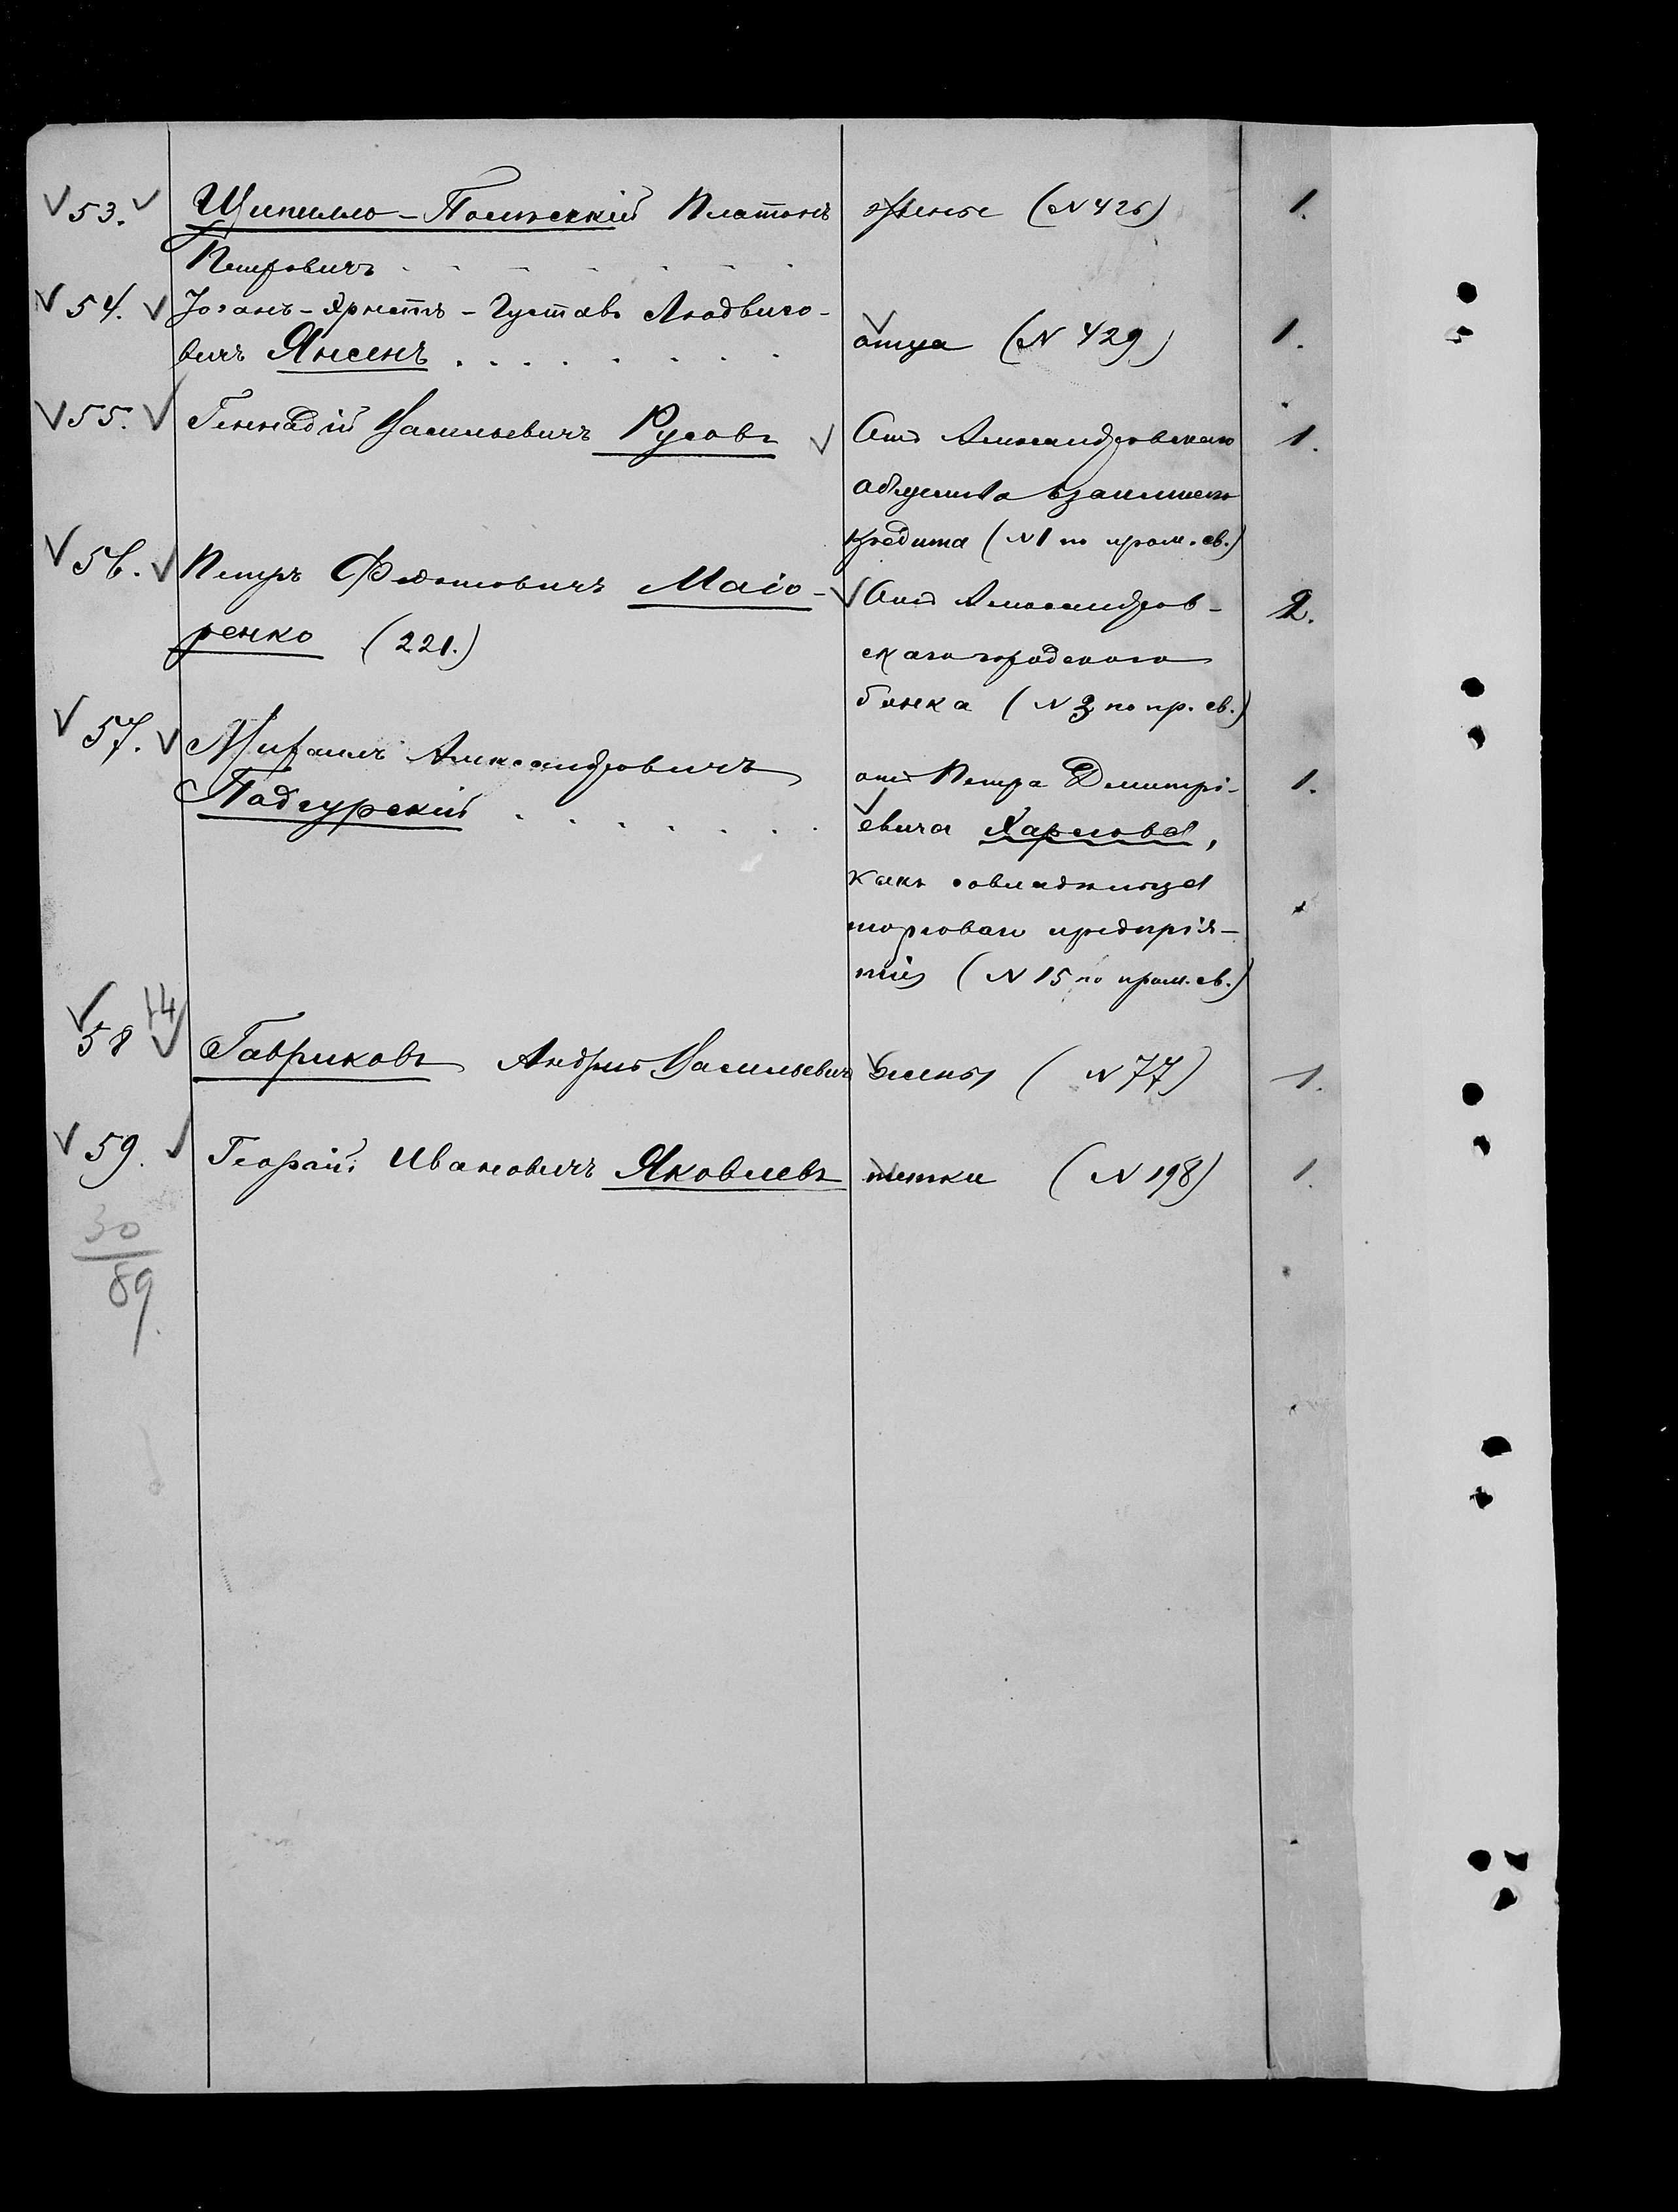 53. Шипилло-Польскій Платонъ жены (N 426) 1.
Петровичъ
54. Іоганъ-Эрнстъ-Густавъ Людвиго-
вичъ Янсенъ отца (N 429) 1.
55. Геннадій Васильевичъ Русовъ Отъ Александровскаго 1.
общества взаимнаго
кредита (N 1 по пром. св.)
56. Петръ Федотовичъ Маіо- Отъ Александров- 2.
ренко (221.) скаго городскаго
банка (N 3 по пр. св.)
57. Михаилъ Александровичъ
Подгурскій отъ Петра Дмитрі- 1.
евича Харлова,
какъ совладѣльца
торговаго предпрія-
тія (N 15 по пром. св.)
14
58 Гавриковъ Андрей Васильевичъ жены (N 77) 1.
59. Георгій Ивановичъ Яковлевъ тетки (N 198) 1.
30
89.